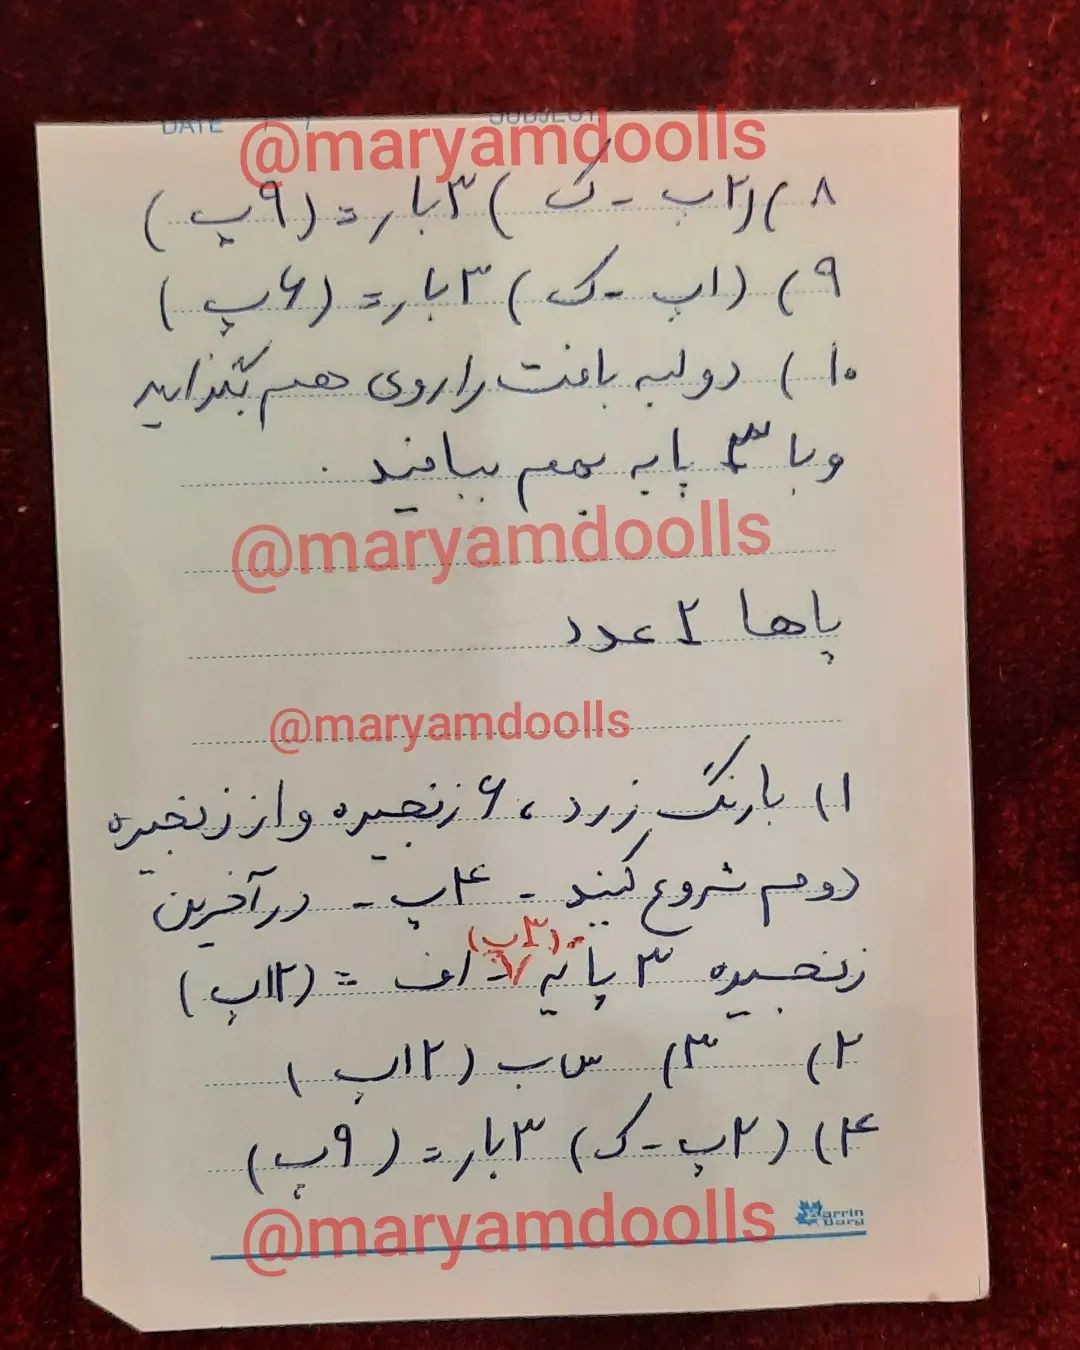 DATE / / SUBJECT
@maryamdoolls
۸) (۲پ - ک) ۳بار = (۹پ)
۹) (۱پ - ک) ۳بار = (۶پ)
۱۰) دو لبه بافت را روی هم بگذارید
و با ۳ پایه بهم ببافید.
@maryamdoolls
پاها ۲ عدد
@maryamdoolls
۱) با رنگ زرد، ۶ زنجیره و از زنجیره
دوم شروع کنید - ۴پ - در آخرین
(۳پ)
زنجیره ۳ پایه - اف = (۱۲پ)
۲) ۳) س ب (۱۲پ)
۴) (۲پ - ک) ۳بار = (۹پ)
@maryamdoolls